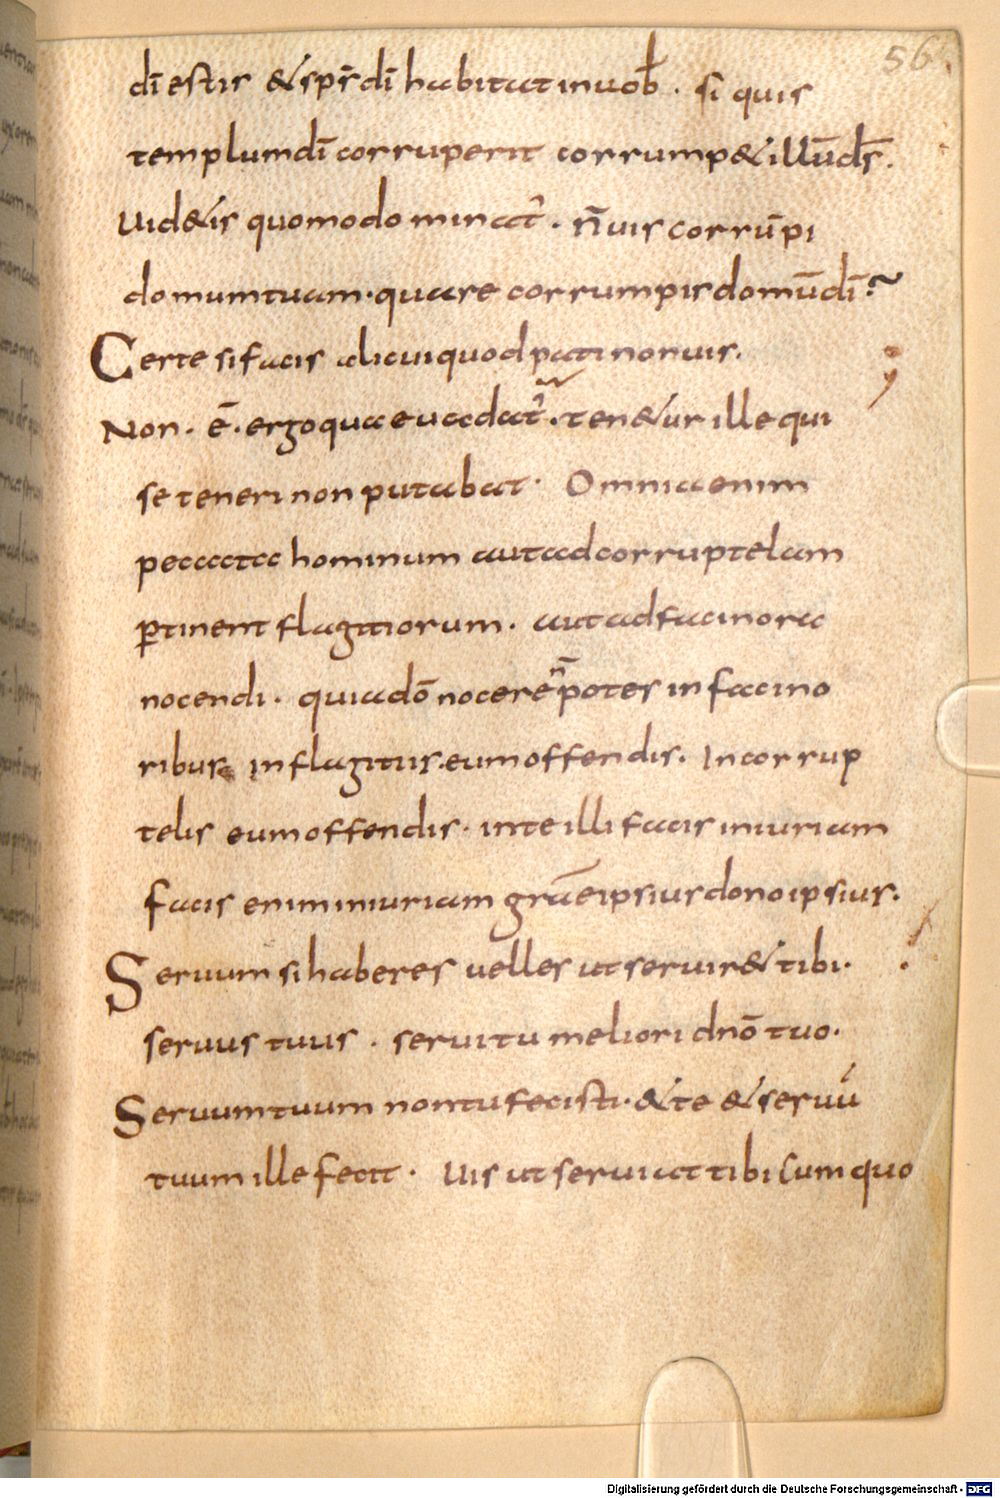 56
dī estis & sp̄s dī habitat in uob̄. si quis
templum dī corruperit corrump& illūd d̄s.
Uid&is quomodo minat᷑. n̄ uis corrūpi
domum tuam. quare corrumpis domū dī?
Certe si facis alicui quod pati non uis.
Non. ē. ergo qua euadat᷑. ten&ur ille qui
se teneri non putabat. Omnia enim
peccata hominum aut ad corruptelam
ꝑtinent flagitiorum. aut ad facinora
nocendi. quia dō nocere n̄ potes in facino
ribus in flagitiis. eum offendis. In corrup
telis eum offendis. in te illi facis iniuriam
facis enim iniuriam grāe ipsius dono ipsius.
Seruum si haberes uelles ut seruir& tibi.
seruus tuus. serui tu meliori dnō tuo.
Seruum tuum non tu fecisti. & te & seruū
tuum ille fecit. Uis ut seruiat tibi cum quo
Digitalisierung gefördert durch die Deutsche Forschungsgemeinschaft - DFG